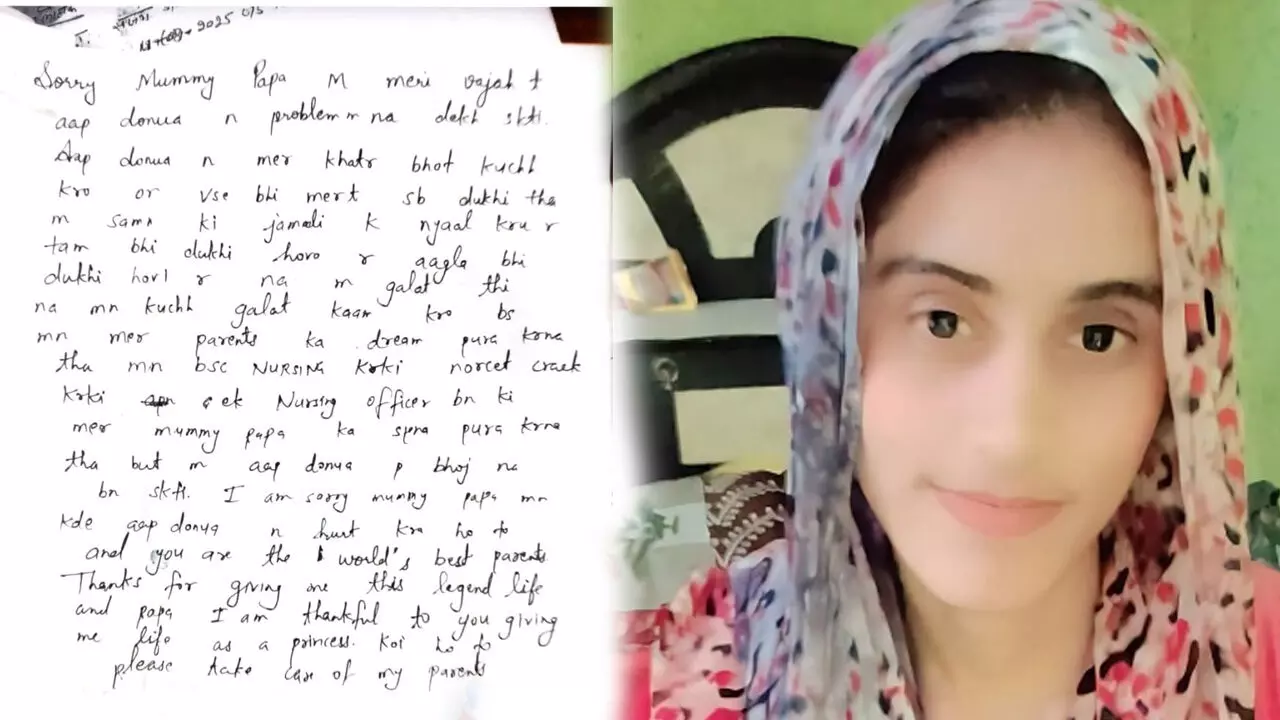 2025
Sorry Mummy Papa M meri vajah t
aap donua n problem m na dekh skti.
Aap donua n mer khatr bhot kuchh
kro or vse bhi mert sb dukhi tha
m samn ki jamali k nyaal kru r
tam bhi dukhi horo r aagla bhi
dukhi horl r na m galat thi
na mn kuchh galat kaam kro bs
mn mer parents ka dream pura krna
tha mn bsc NURSING krki norcet crack
krki ek Nursing officer bn ki
mer mummy papa ka spna pura krna
tha but m aap donua p bhoj na
bn skti. I am sorry mummy papa mn
kde aap donua n hurt kra ho to
and you are the world's best parents
Thanks for giving me this legend life
and papa I am thankful to you giving
me life as a princess. Koi ho to
please take care of my parents